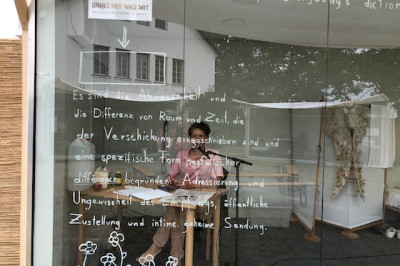 BRING MIR WAS MIT
's diction
Es sind die Abwesenheit und
die Differenz von Raum und Zeit, die
der Verschickung eingeschrieben sind und
eine spezifische Form postalischer
différance begründen. Adressierung und
Ungewissheit des Empfangs, öffentliche
Zustellung und intime, geheime Sendung.